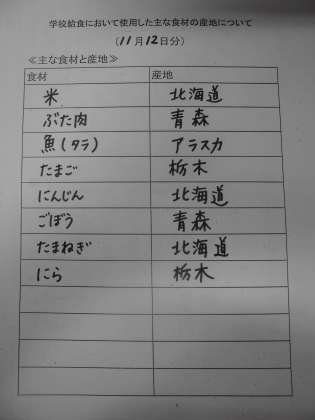 学校給食において使用した主な食材の産地について
(11月12日分)
≪主な食材と産地≫
食材 産地
米 北海道
ぶた肉 青森
魚(タラ) アラスカ
たまご 栃木
にんじん 北海道
ごぼう 青森
たまねぎ 北海道
にら 栃木